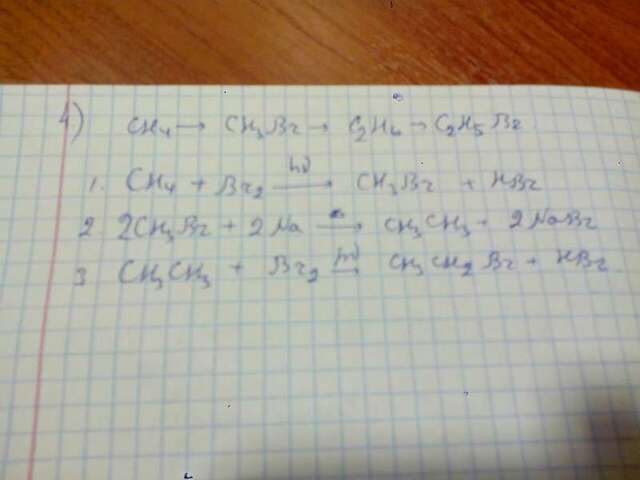 4) CH₄ → CH₃Br → C₂H₆ → C₂H₅Br
1. CH₄ + Br₂ —hν→ CH₃Br + HBr
2. 2CH₃Br + 2Na → CH₃CH₃ + 2NaBr
3 CH₃CH₃ + Br₂ —hν→ CH₃CH₂Br + HBr